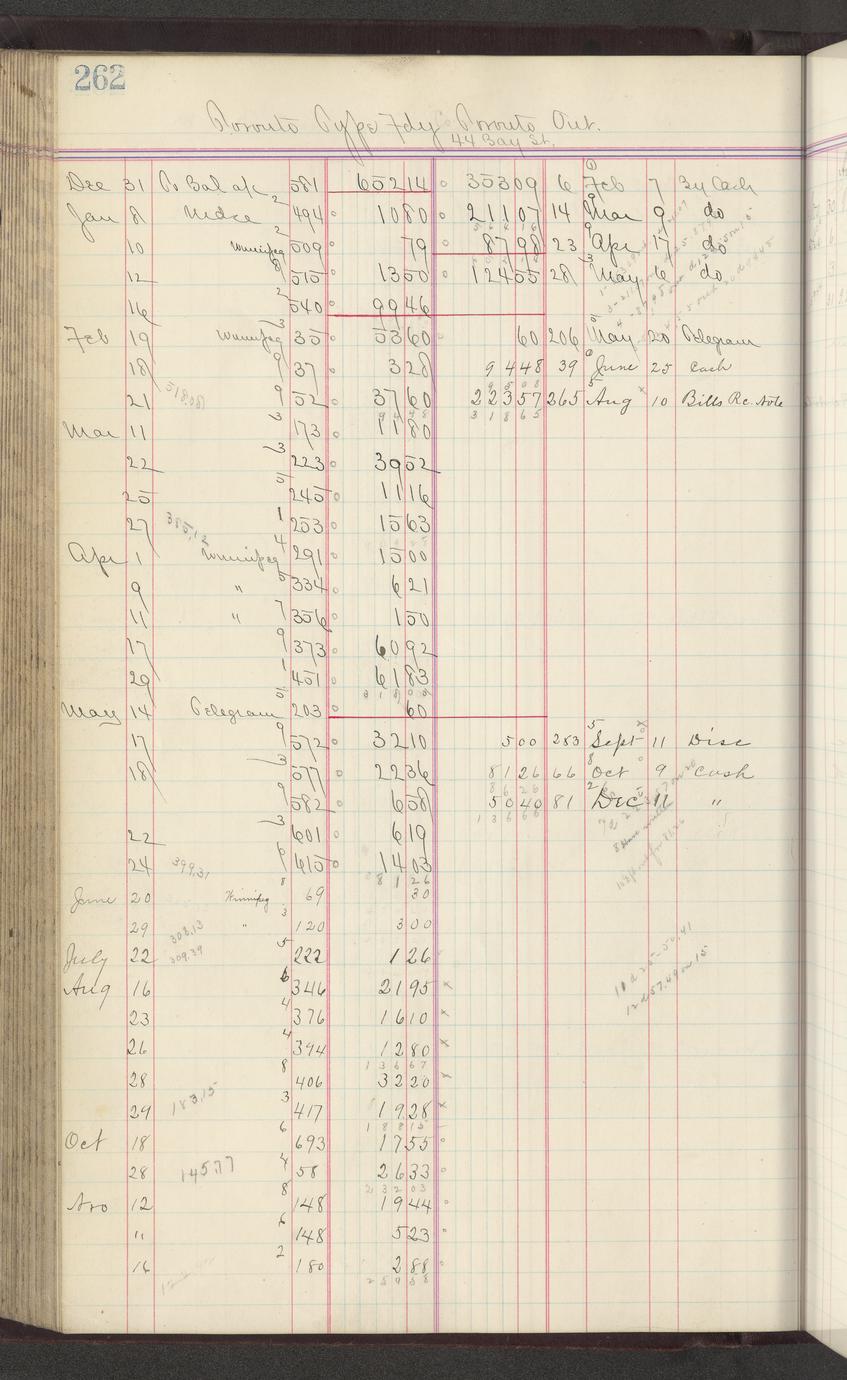 262
Toronto Type Fdy Toronto Ont.
44 Bay St.
Dec 31 To Bal a/c 581 652 14 353 09 6 Feb 7 By Cash
Jan 8 Mdse 2 494 10 80 211 07 14 Mar 9 do
10 Winnipeg 2 509 79 87 98 23 Apr 17 do
12 8 515 13 50 124 55 28 May 6 do
16 2 540 99 46
Feb 19 Winnipeg 3 35 53 60 60 206 May 20 Telegram
18 9 37 3 28 94 48 39 June 25 Cash
21 518.08 9 52 37 60 223 57 265 Aug 10 Bills Rec. Note
94 48 318 65
Mar 11 3 173 11 80
22 3 223 39 52
25 5 245 11 16
27 385.12 1 253 15 63
Apr 1 Winnipeg 4 291 15 00
9 " 5 334 6 21
11 " 7 356 1 50
17 9 373 60 92
29 1 451 61 83
318 05
May 14 Telegram 5 203 60
17 9 572 32 10 5 00 283 Sept 11 Disc
18 3 577 22 36 81 26 66 Oct 9 Cash
86 26
9 582 6 58 50 40 81 Dec 11 "
136 66
22 3 601 6 19
24 399.31 6 615 14 03
81 26
June 20 Winnipeg 8 69 30
29 308.13 " 3 120 3 00
July 22 309.39 5 222 1 26
Aug 16 6 346 21 95
23 4 376 16 10
10 d 25-50.41
12 d 57.49 on 15
26 4 394 12 80
136 67
28 8 406 32 20
29 183.15 3 417 19 28
188 15
Oct 18 6 693 17 55
28 145.77 4 58 26 33
232 03
Nov 12 8 148 19 44
" 6 148 5 23
16 2 180 2 88
259 58